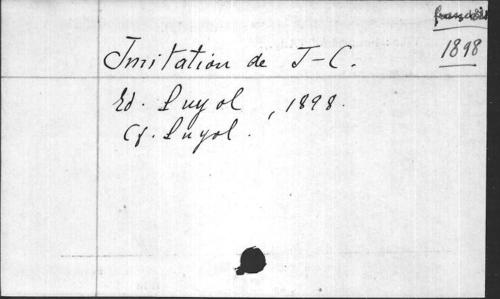 français
1898
Imitation de J-C.
Ed. Puyol, 1898.
Cf. Puyol.